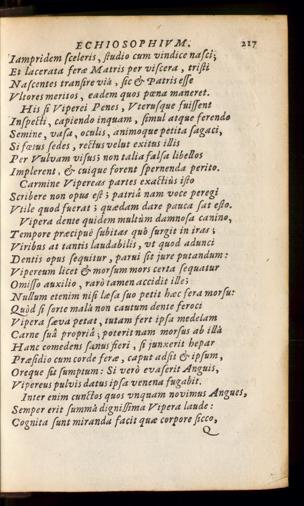 ECHIOSOPHIVM. 217
Iampridem sceleris, studio cum vindice nasci;
Et lacerata feræ Matris per viscera, tristi
Nascentes transire viâ, sic & Patris esse
Vltores meritos, eadem quos pœna maneret.
His si Viperei Penes, Vterusque fuissent
Inspecti, capiendo inquam, simul atque ferendo
Semine, vasa, oculis, animoque petita sagaci,
Si fœtus sedes, rectus velut exitus illis
Per Vulvam visus; non talia falsa libellos
Implerent, & cuique forent spernenda perito.
Carmine Vipereas partes exactiùs isto
Scribere non opus est; patriâ nam voce peregi
Vtile quod fuerat; quædam dare pauca sat esto.
Vipera dente quidem multùm damnosa canino,
Tempore præcipuè subitas quò surgit in iras;
Viribus at tantis laudabilis, vt quod adunci
Dentis opus sequitur, parui sit jure putandum:
Vipereum licet & morsum mors certa sequatur
Omisso auxilio, rarò tamen accidit ille;
Nullum etenim nisi læsa suo petit hæc fera morsu:
Quòd si forte malà non cautum dente feroci
Vipera sæva petat, tutam fert ipsa medelam
Carne suâ propriâ; poterit nam morsus ab illâ
Hanc comedens sanus fieri, si junxerit hepar
Præsidio cum corde feræ, caput adsit & ipsum,
Oreque sit sumptum: Si verò evaserit Anguis,
Vipereus pulvis datus ipsa venena fugabit.
Inter enim cunctos quos vnquam novimus Angues,
Semper erit summâ dignissima Vipera laude:
Cognita sunt miranda facit quæ corpore sicco,
Q